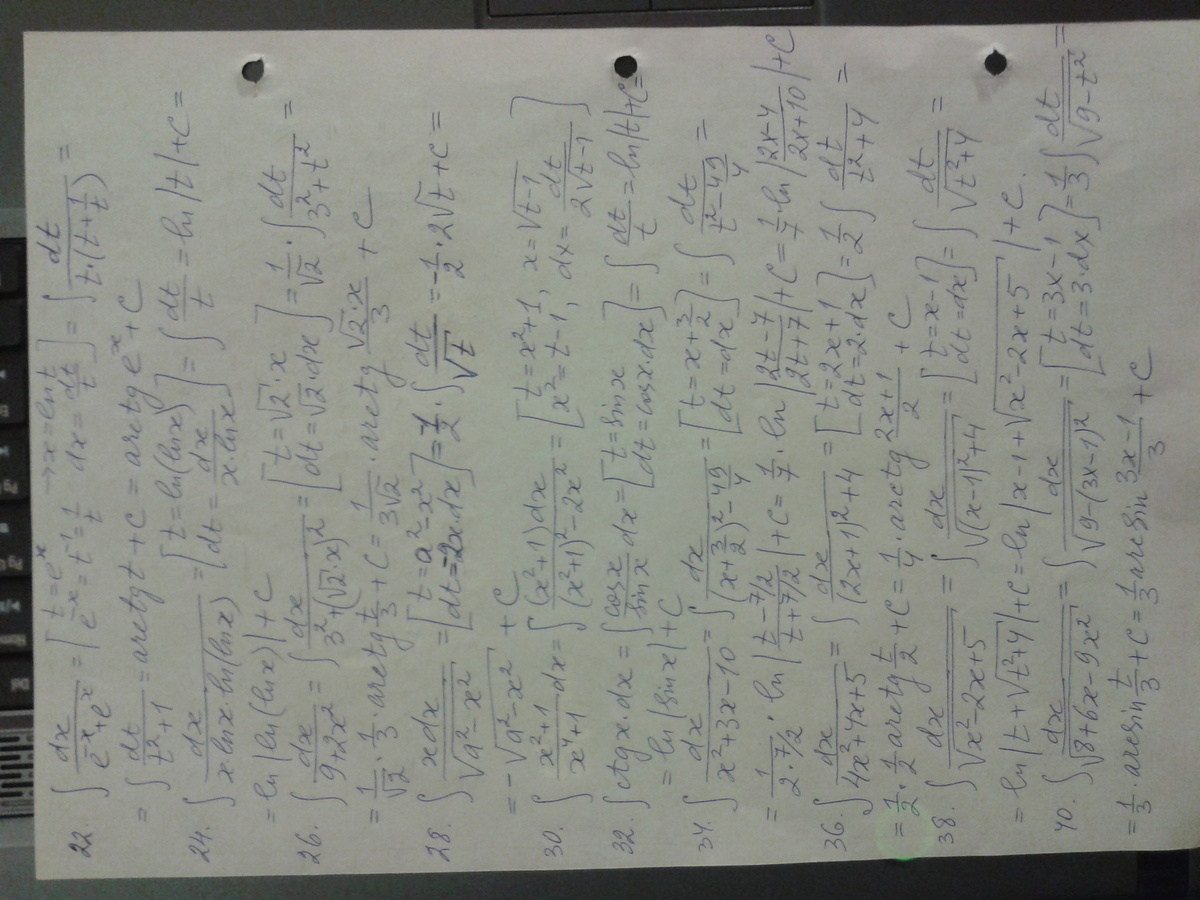 22. ∫ dx/(e^-x + e^x) = [t = e^x → x = ln t; e^-x = t^-1 = 1/t  dx = dt/t] = ∫ dt/(t·(t + 1/t)) =
= ∫ dt/(t²+1) = arctg t + C = arctg e^x + C
24. ∫ dx/(x ln x · ln(ln x)) = [t = ln(ln x); dt = dx/(x·ln x)] = ∫ dt/t = ln|t| + C =
= ln|ln(ln x)| + C
26. ∫ dx/(9+2x²) = ∫ dx/(3²+(√2·x)²) = [t = √2·x; dt = √2·dx] = 1/√2 · ∫ dt/(3²+t²) =
= 1/√2 · 1/3 · arctg t/3 + C = 1/(3√2) · arctg (√2·x)/3 + C
28. ∫ xdx/√(a²-x²) = [t = a²-x²; dt = -2x·dx] = -1/2 · ∫ dt/√t = -1/2 · 2√t + C =
= -√(a²-x²) + C
30. ∫ (x²+1)/(x⁴+1) dx = ∫ (x²+1)dx/((x²+1)²-2x²) = [t = x²+1, x = √(t-1); x² = t-1, dx = dt/(2√(t-1))]
32. ∫ ctgx·dx = ∫ cosx/sinx dx = [t = sinx; dt = cosx·dx] = ∫ dt/t = ln|t| + C =
= ln|sinx| + C
34. ∫ dx/(x²+3x-10) = ∫ dx/((x+3/2)²-49/4) = [t = x+3/2; dt = dx] = ∫ dt/(t²-49/4) =
= 1/(2·7/2) · ln|(t-7/2)/(t+7/2)| + C = 1/7 · ln|(2t-7)/(2t+7)| + C = 1/7 · ln|(2x-4)/(2x+10)| + C
36. ∫ dx/(4x²+4x+5) = ∫ dx/((2x+1)²+4) = [t = 2x+1; dt = 2·dx] = 1/2 ∫ dt/(t²+4) =
= 1/2 · 1/2 arctg t/2 + C = 1/4 · arctg (2x+1)/2 + C
38. ∫ dx/√(x²-2x+5) = ∫ dx/√((x-1)²+4) = [t = x-1; dt = dx] = ∫ dt/√(t²+4) =
= ln|t+√(t²+4)| + C = ln|x-1+√(x²-2x+5)| + C.
40. ∫ dx/√(8+6x-9x²) = ∫ dx/√(9-(3x-1)²) = [t = 3x-1; dt = 3·dx] = 1/3 ∫ dt/√(9-t²) =
= 1/3 · arcsin t/3 + C = 1/3 arcsin (3x-1)/3 + C